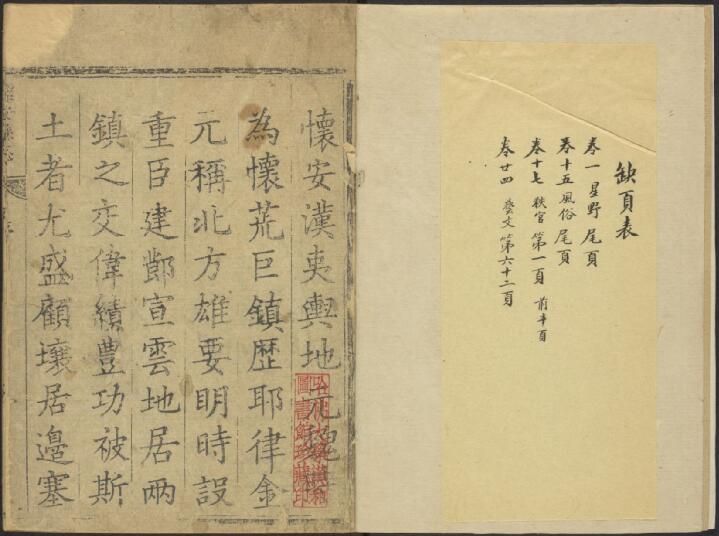 缺頁表
卷一 星野 尾頁
卷十五 風俗 尾頁
卷十七 秩官 第一頁 前半頁
卷廿四 藝文 第六十二頁
懷安漢夷輿地元魏
為懷荒巨鎮歷耶律金
元稱北方雄要明時設
重臣建宣雲地居兩
鎮之交偉績豐功被斯
土者尤盛顧壤居邊塞
哈佛大學漢和
圖書館珍藏印